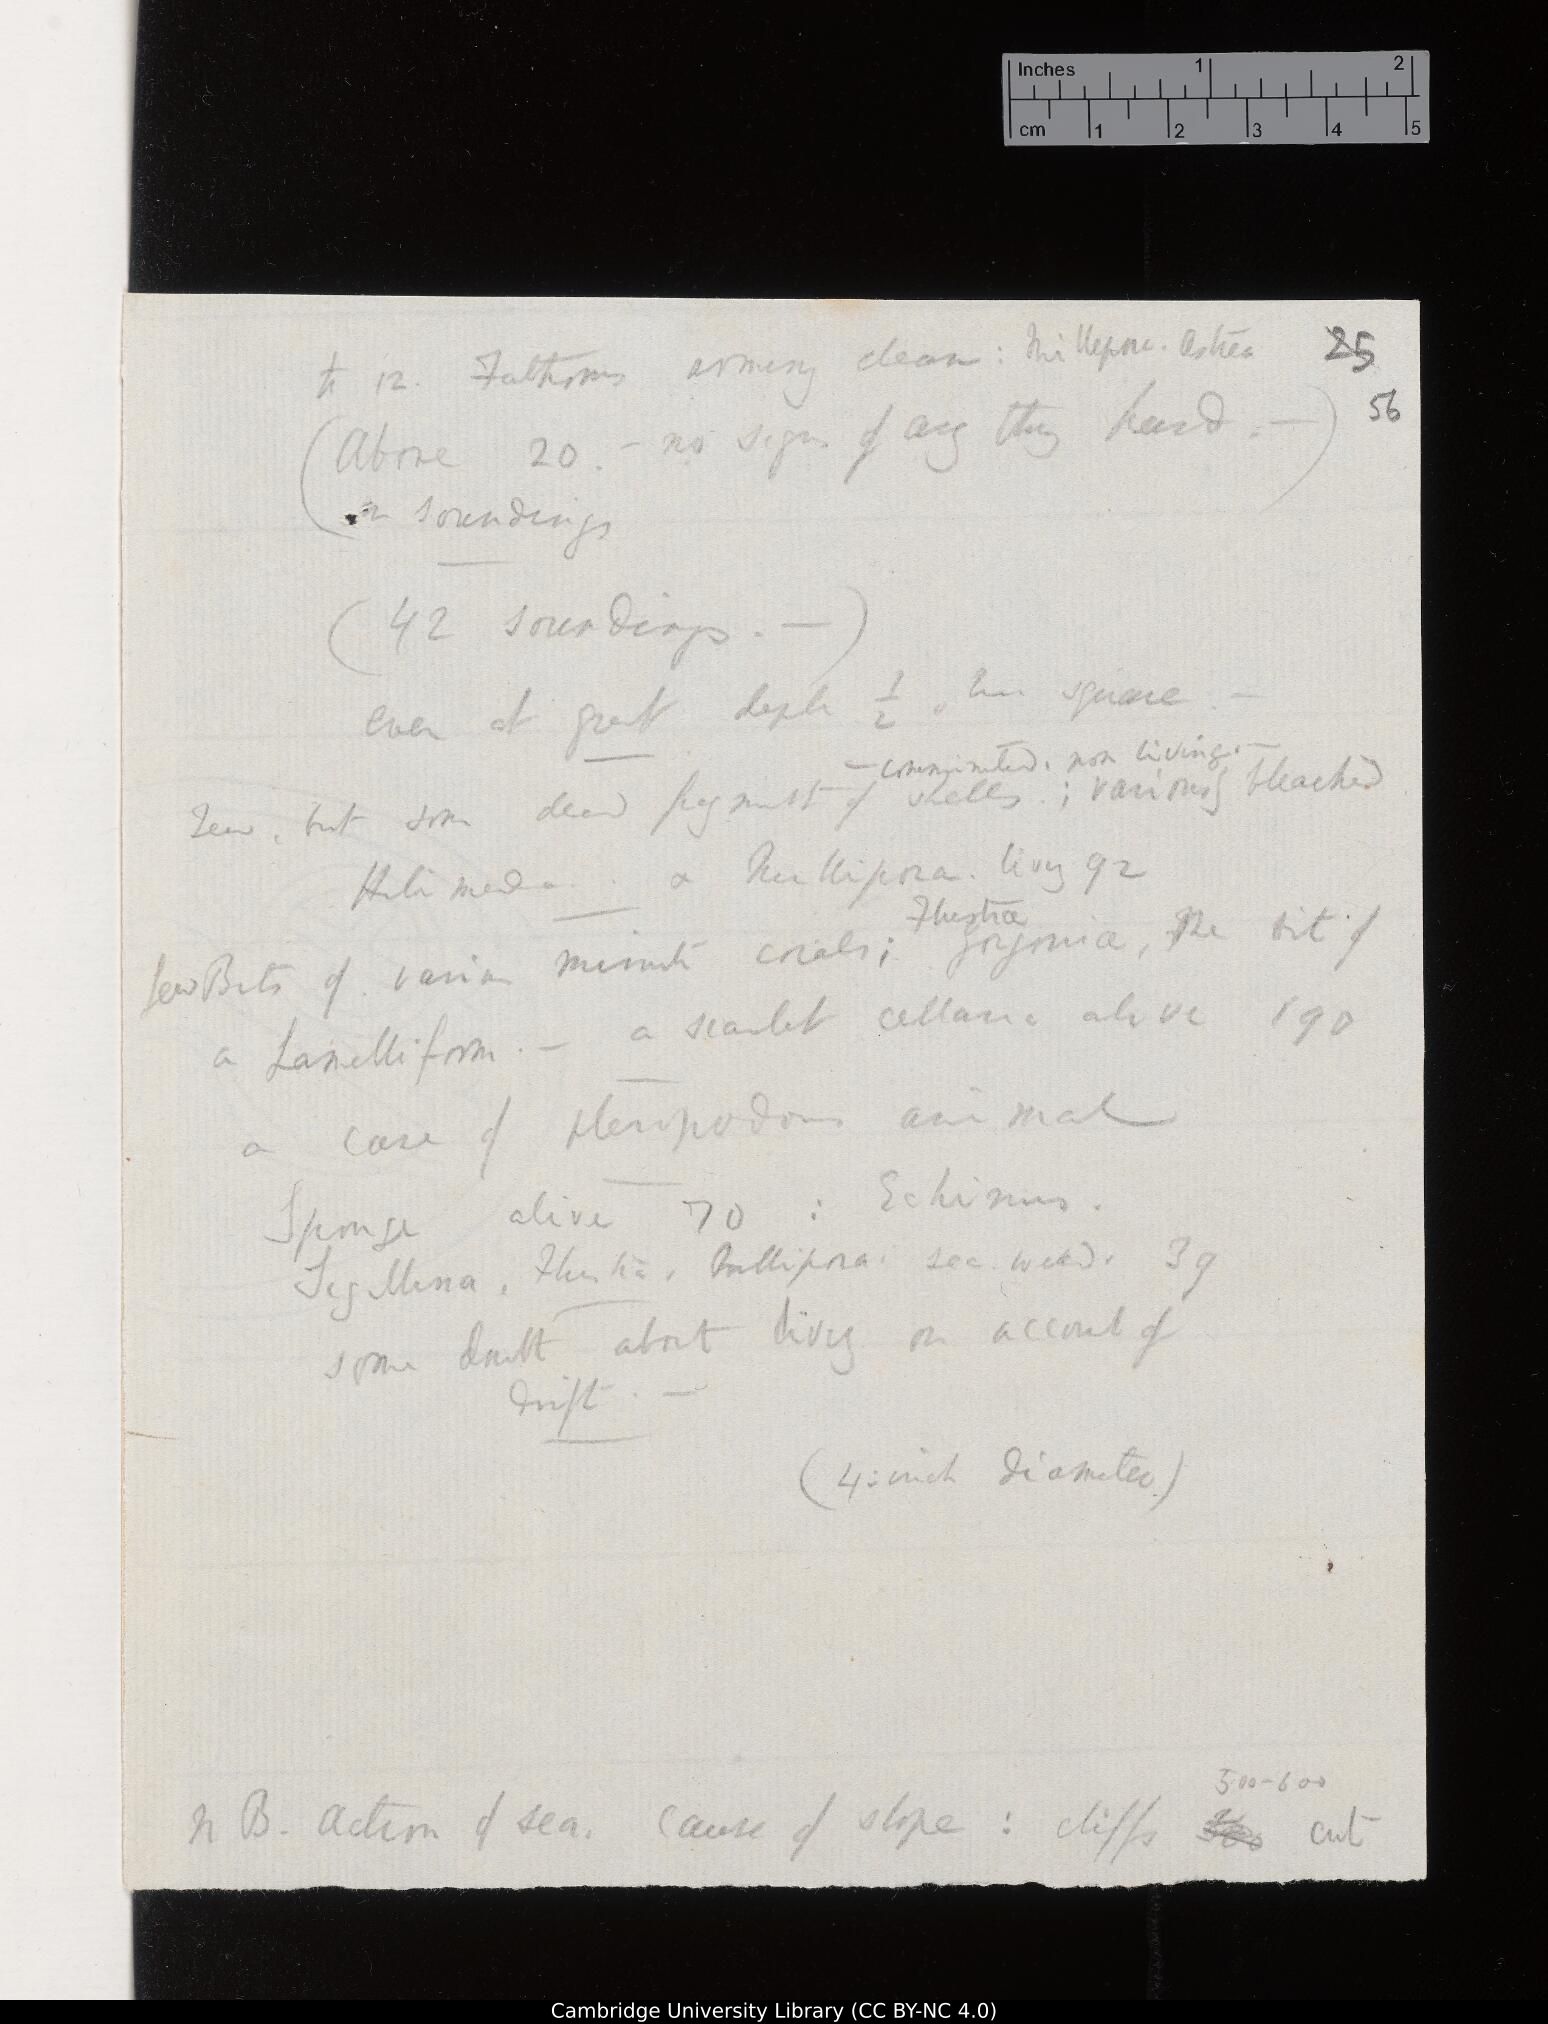 Inches 1 2
cm 1 2 3 4 5
25
56
to 12. Fathoms arming clean: Millepora. Astrea
(Above 20. — no sign of any thing hard. —)
soundings
(42 soundings. —)
even at great depth 1/2 square —
— comminuted. non living. —
Few, but some dead fragment of shells.; various bleached
Halimeda. a Nullipora. living 92
Flustra
few Bits of various minute corals; Gorgonia, The bit of
a Lamelliform. — a scarlet cellaria alive 190
a case of pteropodous animal
Sponge alive 70 : Echinus.
Flustra, Nullipora. sea weed. 39
some doubt about living on account of
drift. —
(4: inch diameter)
500-600
N B. Action of sea. cause of slope : cliffs cut
Cambridge University Library (CC BY-NC 4.0)